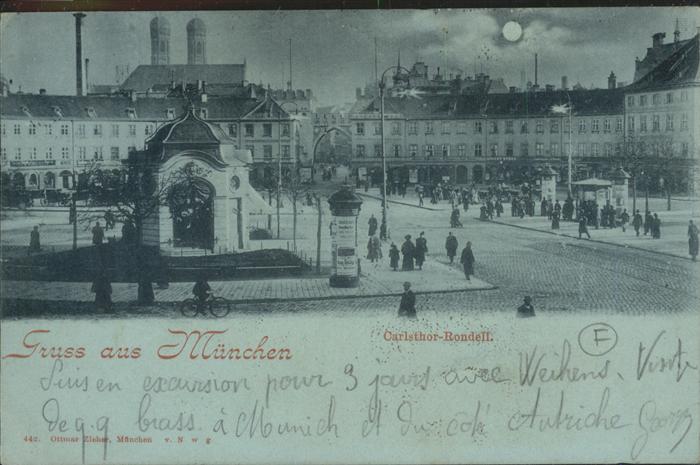 Gruss aus München
Carlsthor-Rondell.
F
Suis en excursion pour 3 jours avec Weihens. Visite
de q.q brass. à Munich et du côté Autriche Georg
442. Ottmar Zieher, München v. N w g